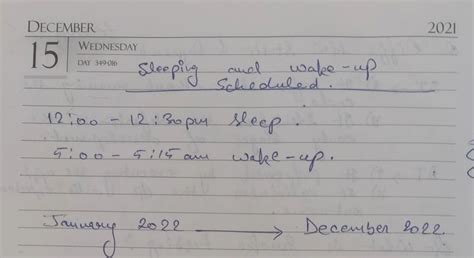 DECEMBER 2021
15 WEDNESDAY
DAY 349-016
Sleeping and wake-up
Scheduled.
12:00 - 12:30pm sleep.
5:00 - 5:15am wake-up.
January 2022 → December 2022.